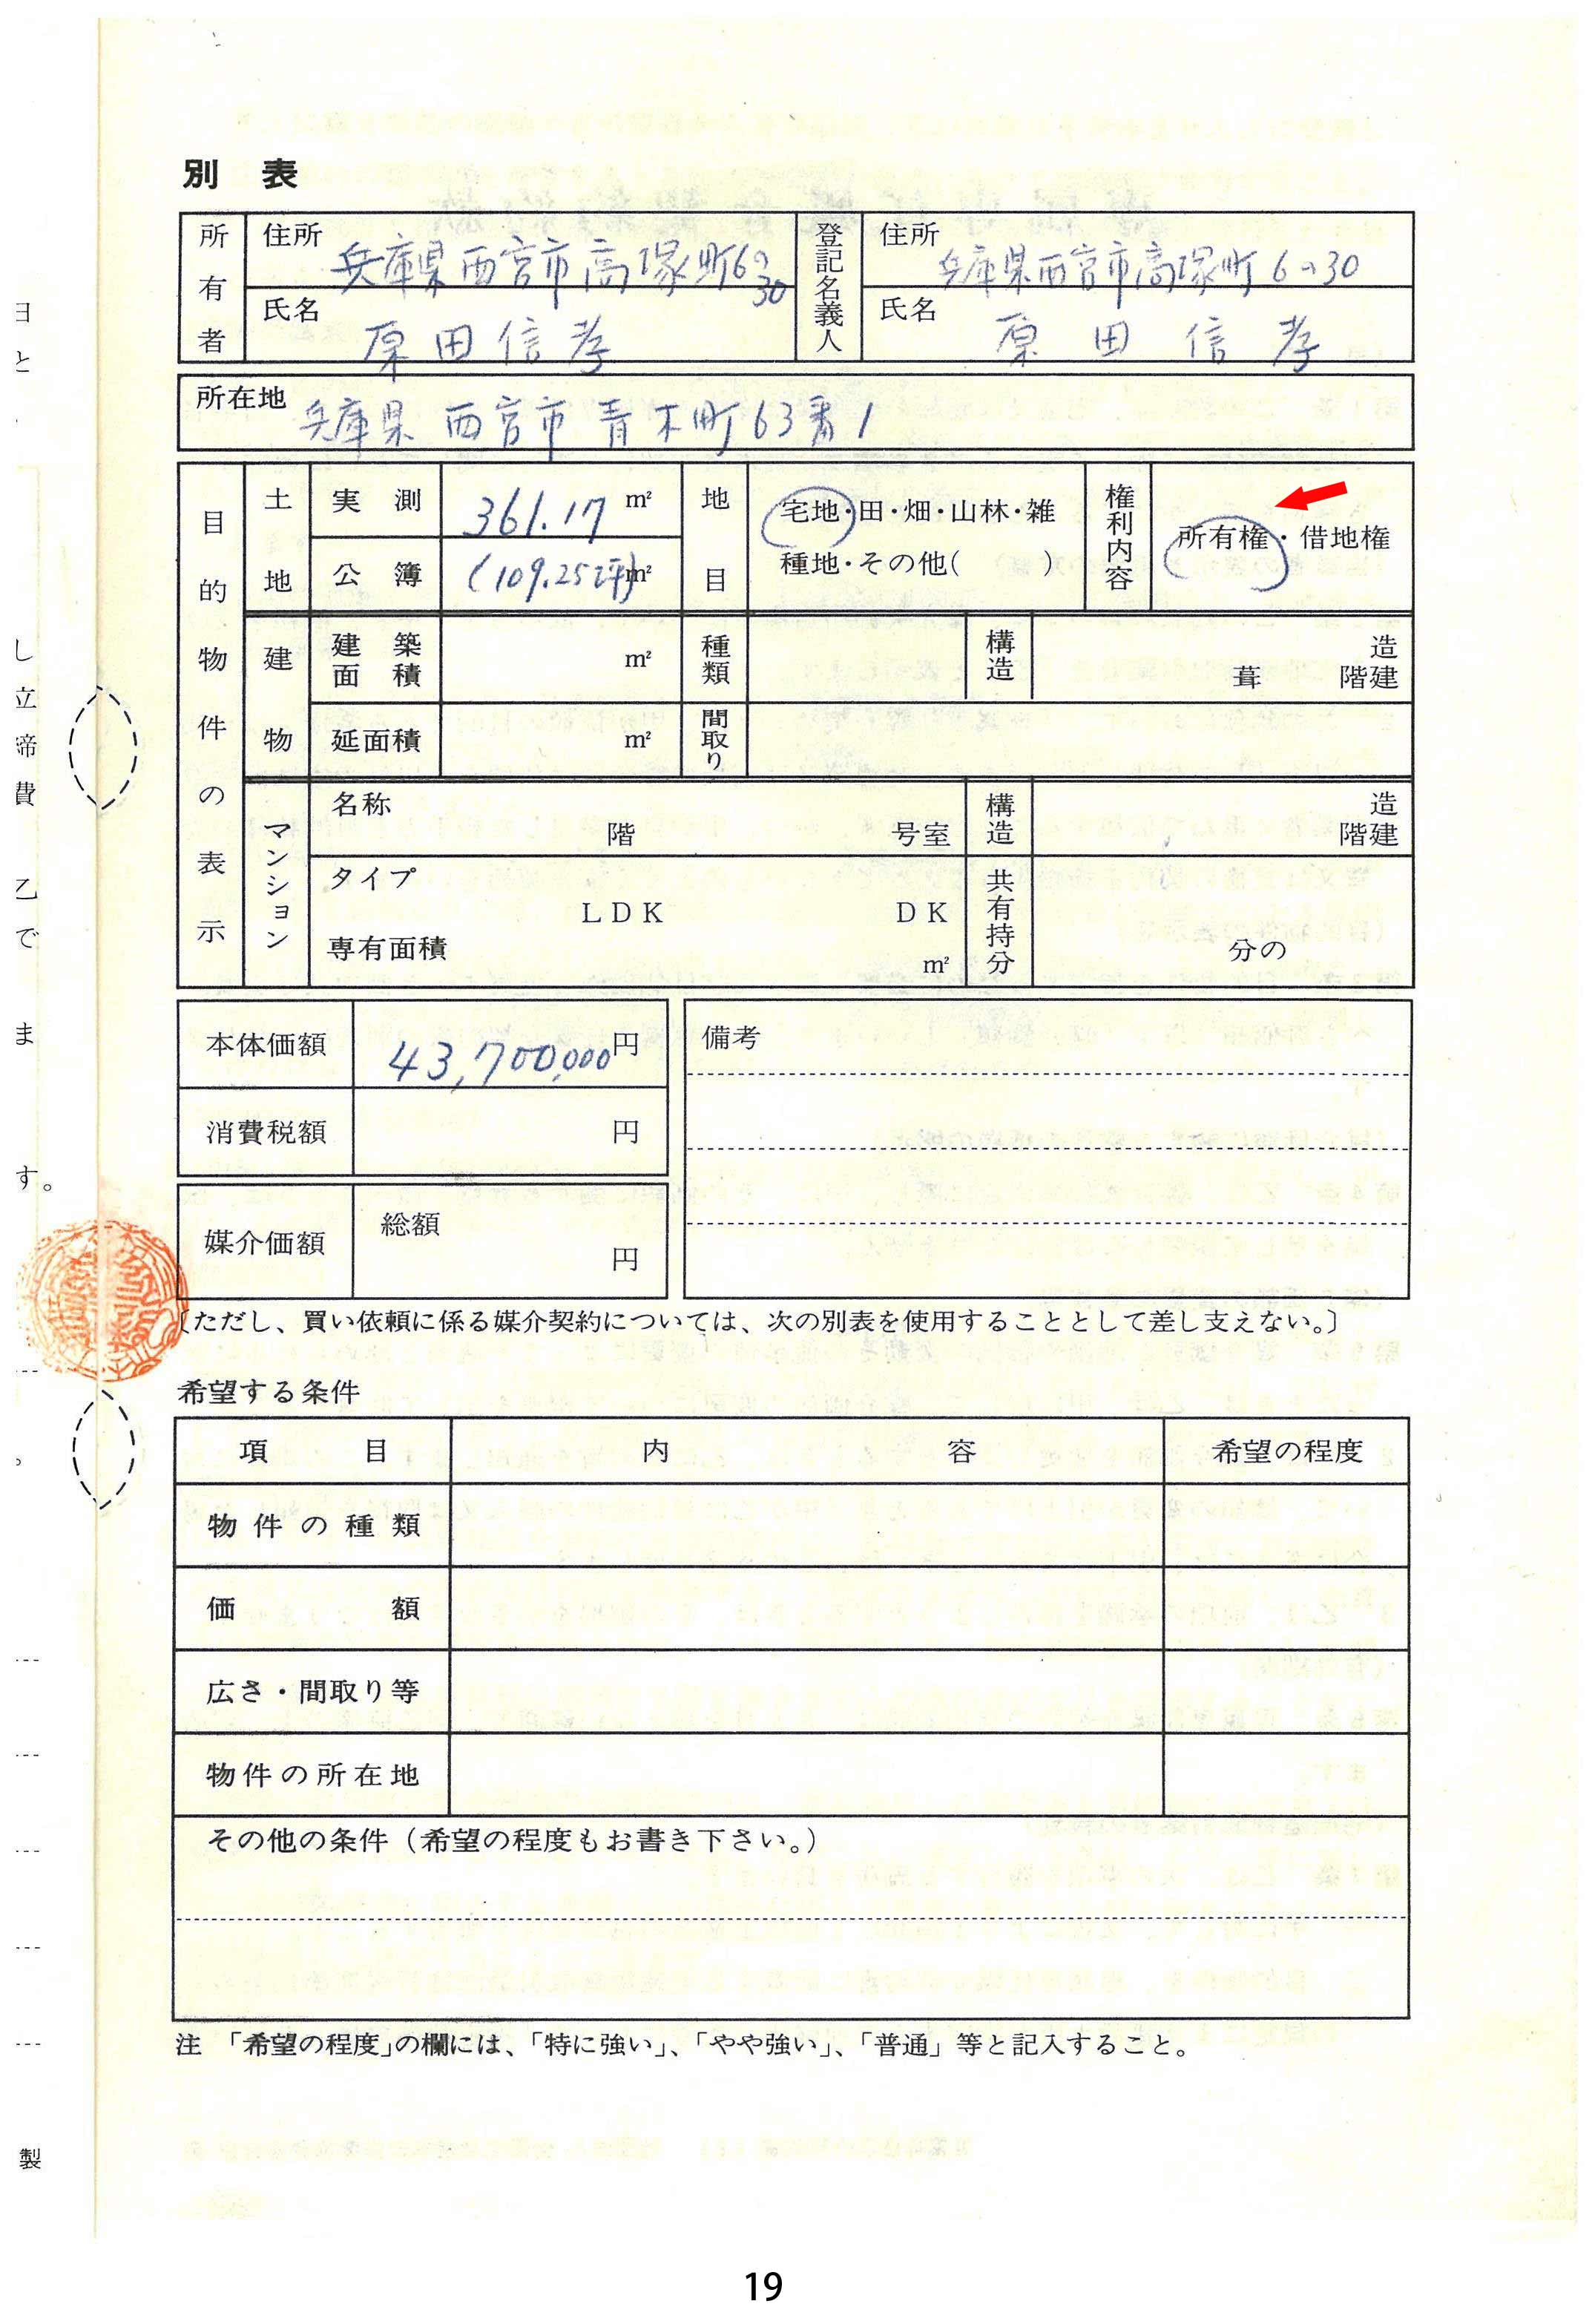 別 表
所有者
住所
兵庫県西宮市高塚町6の30
氏名
原田信孝
登記名義人
住所
兵庫県西宮市高塚町6の30
氏名
原田信孝
所在地
兵庫県西宮市青木町63番1
目的物件の表示
土地
実測
361.17 m²
公簿
(109.25坪) m²
地目
宅地・田・畑・山林・雑
種地・その他( )
権利内容
所有権・借地権
建物
建築面積
m²
種類
構造
造
葺 階建
延面積
m²
間取り
マンション
名称
階 号室
構造
造
階建
タイプ
LDK DK
専有面積
m²
共有持分
分の
本体価額
43,700,000円
消費税額
円
媒介価額
総額
円
備考
〔ただし、買い依頼に係る媒介契約については、次の別表を使用することとして差し支えない。〕
希望する条件
項目 内容 希望の程度
物件の種類
価額
広さ・間取り等
物件の所在地
その他の条件(希望の程度もお書き下さい。)
注 「希望の程度」の欄には、「特に強い」、「やや強い」、「普通」等と記入すること。
日
と
し
立
締
費
乙
で
ま
す。
製
19